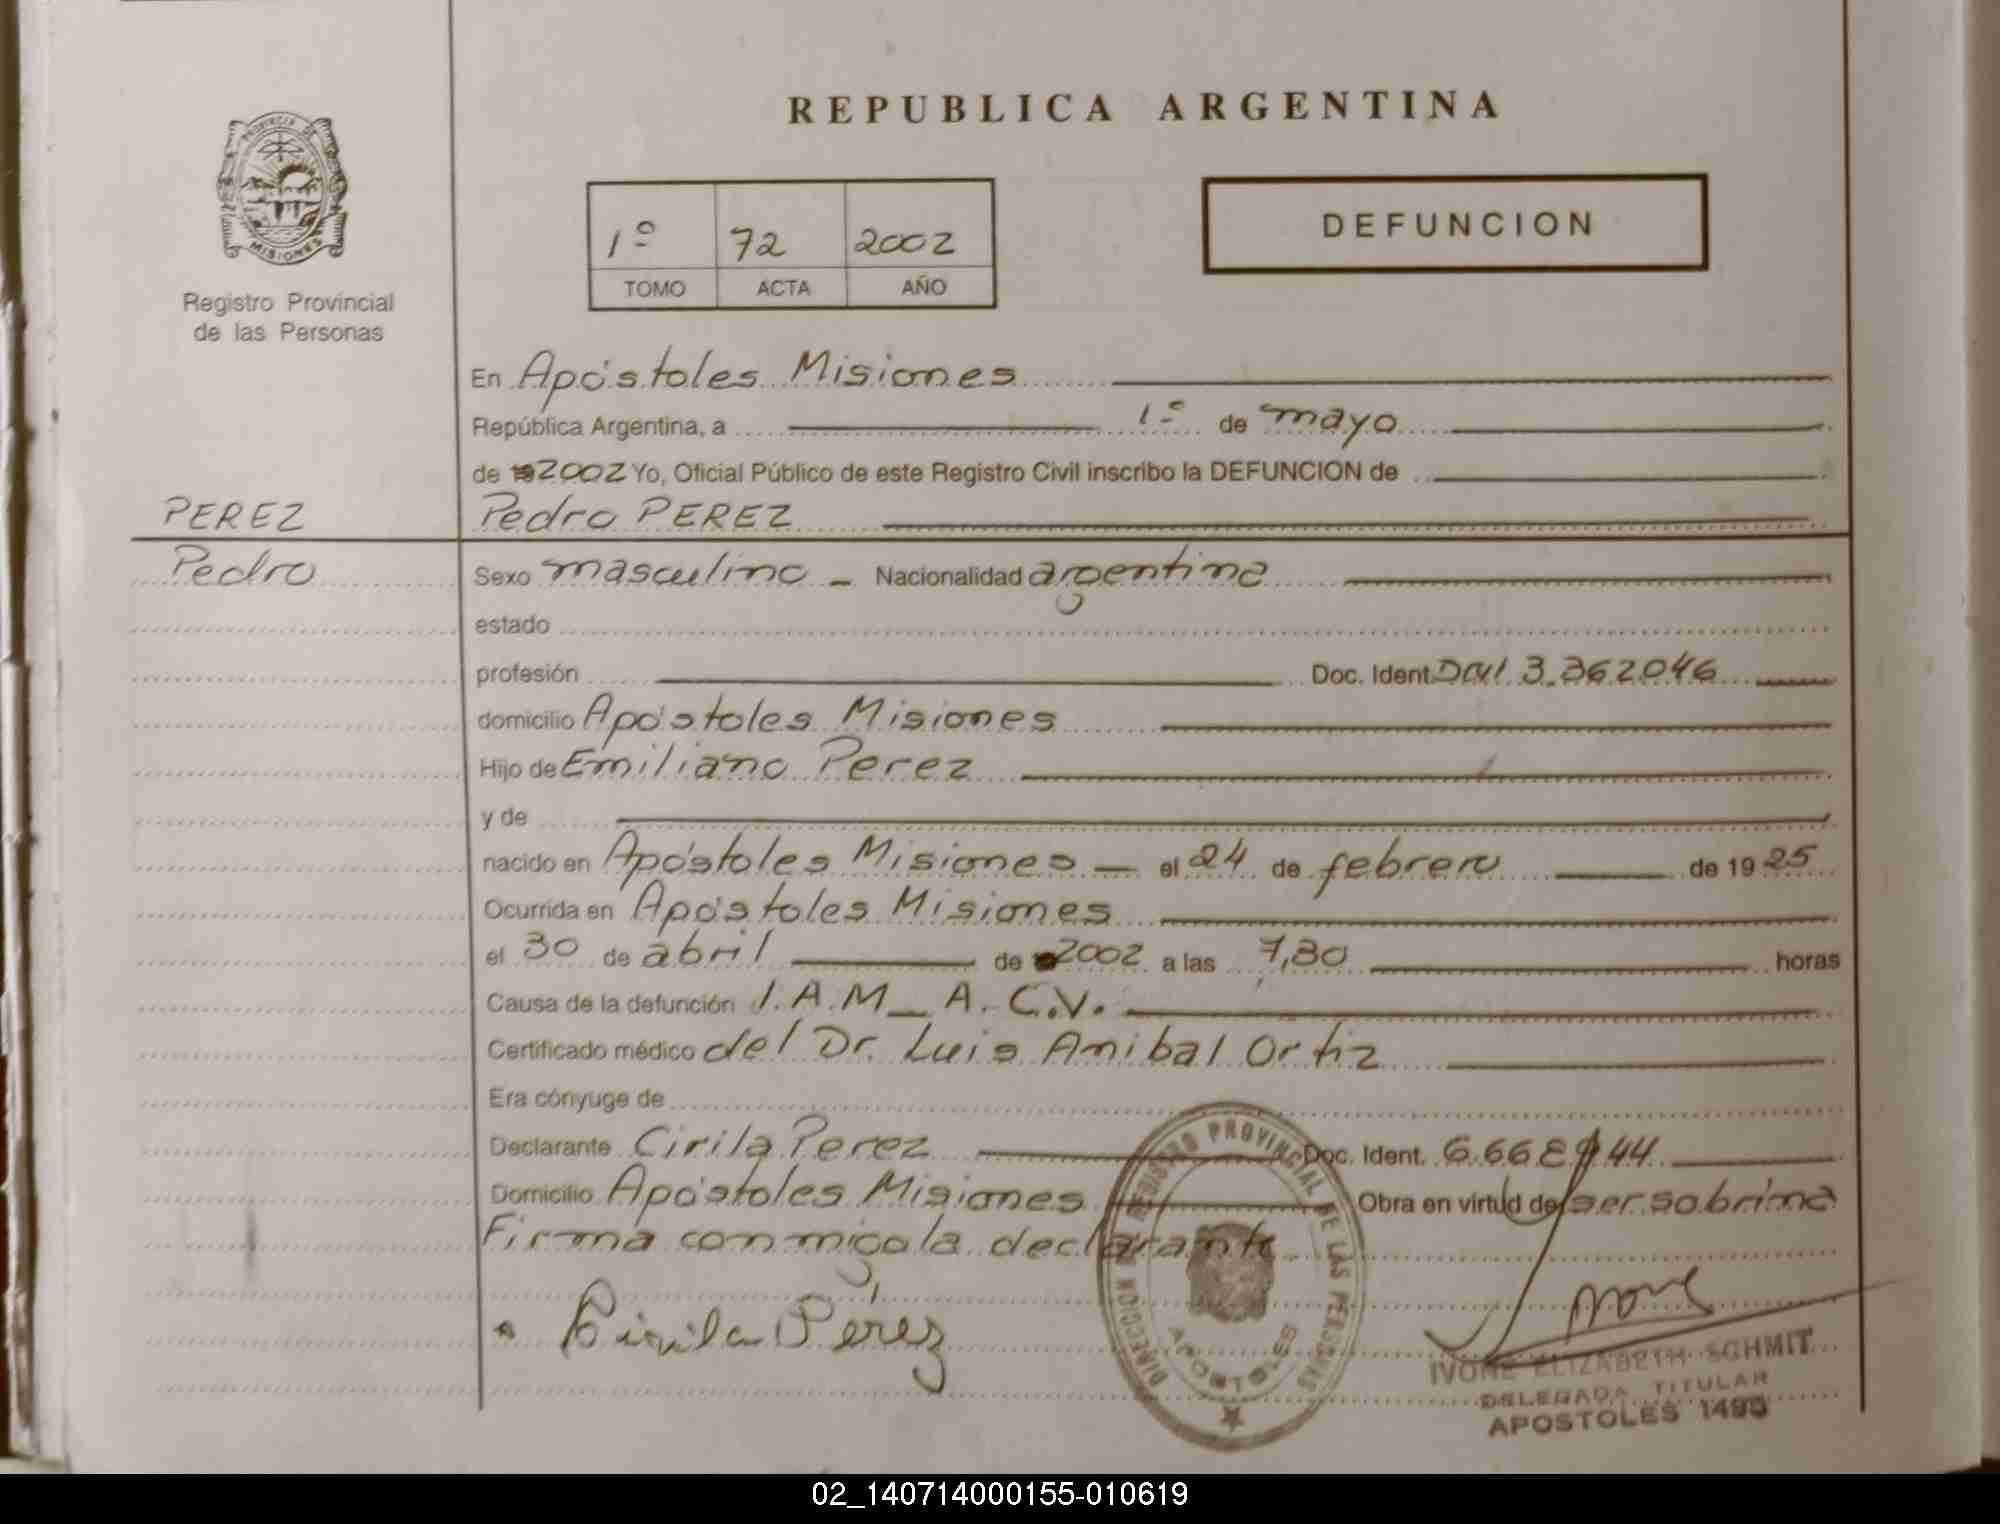 REPUBLICA ARGENTINA
PROVINCIA DE
MISIONES
Registro Provincial
de las Personas
1º 72 2002
TOMO ACTA AÑO
DEFUNCION
En Apóstoles Misiones
República Argentina, a 1º de mayo
de 2002 Yo, Oficial Público de este Registro Civil inscribo la DEFUNCION de
PEREZ
Pedro PEREZ
Pedro
Sexo masculino - Nacionalidad argentina
estado
profesión Doc. Ident. DNI 3.362046
domicilio Apóstoles Misiones
Hijo de Emiliano Perez
y de
nacido en Apóstoles Misiones — el 24 de febrero de 1925
Ocurrida en Apóstoles Misiones
el 30 de abril de 2002 a las 7,30 horas
Causa de la defunción I.A.M_ A.C.V.
Certificado médico del Dr. Luis Anibal Ortiz
Era cónyuge de
Declarante Cirila Perez Doc. Ident.
Domicilio Apóstoles Misiones Obra en virtud de ser sobrina
Firma conmigo la declarante
Cirila Pérez
DIRECCION DE REGISTRO PROVINCIAL DE LAS PERSONAS
APOSTOLES
IVONE ELIZABETH SCHMIT
DELEGADA TITULAR
APOSTOLES
02_140714000155-010619